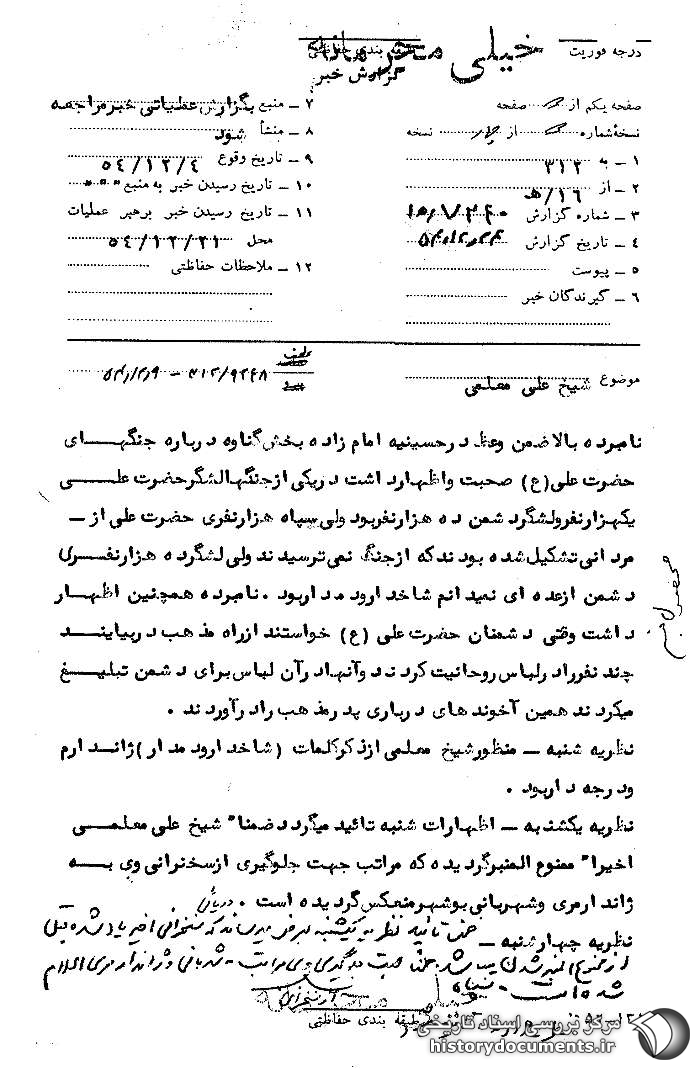 درجه فوریت
خیلی محرمانه
طبقه بندی حفاظتی
گزارش خبر
صفحه یکم از صفحه
نسخهٔ شماره از نسخه
۱ ــ به ۳۱۲
۲ ــ از ۱۶/هـ
۳ ــ شماره گزارش
۴ ــ تاریخ گزارش
۵ ــ پیوست
۶ ــ گیرندگان خبر
۷ ــ منبع بگزارش عملیاتی خبر مراجعه
۸ ــ منشأ شود
۹ ــ تاریخ وقوع ۵۴/۱۲/۴
۱۰ ــ تاریخ رسیدن خبر به منبع " " "
۱۱ ــ تاریخ رسیدن خبر برهبر عملیات
محل ۵۴/۱۲/۲۱
۱۲ ــ ملاحظات حفاظتی
موضوع شیخ علی معلمی
نامبرده بالا ضمن وعظ در حسینیه امام زاده بخش گناوه درباره جنگهای
حضرت علی (ع) صحبت و اظهار داشت در یکی از جنگها لشگر حضرت علی
یکهزار نفر و لشگر دشمن ده هزار نفر بود ولی سپاه هزار نفری حضرت علی از ــ
مردانی تشکیل شده بودند که از جنگ نمی ترسیدند ولی لشگر ده هزار نفری
دشمن از عده ای نمیدانم شاخدارود مدار بود . نامبرده همچنین اظهار
داشت وقتی دشمنان حضرت علی (ع) خواستند از راه مذهب در بیایند
چند نفر را در لباس روحانیت کردند و آنها در آن لباس برای دشمن تبلیغ
میکردند همین آخوند های درباری پدر مذهب را در آوردند .
نظریه شنبه ــ منظور شیخ معلمی از ذکر کلمات (شاخدارود مدار) ژاندارم
و درجه دار بود .
نظریه یکشنبه ــ اظهارات شنبه تائید میگردد ضمنا" شیخ علی معلمی
اخیرا" ممنوع المنبر گردیده که مراتب جهت جلوگیری از سخنرانی وی به
ژاندارمری و شهربانی بوشهر منعکس گردیده است . دریائی
نظریه چهارشنبه ــ ضمن تائید نظریه یکشنبه بعرض میرساند که سخنرانی اخیر یاد شده قبل
از ممنوع المنبر شدن میباشد ضمنا جهت جلوگیری وی مراتب به شهربانی و ژاندارمری اعلام
شده است
طبقه بندی حفاظتی
مرکز بررسی اسناد تاریخی
historydocuments.ir